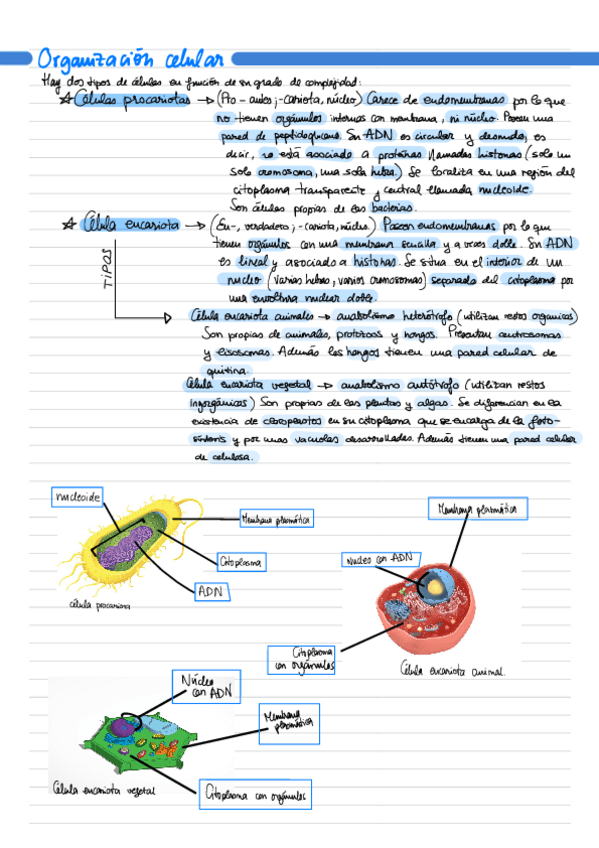 Organización celular
Hay dos tipos de células en función de su grado de complejidad:
☆ Células procariotas → (Pro - antes; -cariota, núcleo) Carece de endomembranas por lo que
no tienen orgánulos internos con membrana, ni núcleo. Poseen una
pared de peptidoglucano. Su ADN es circular y desnudo, es
decir, no está asociado a proteínas llamadas histonas (solo un
solo cromosoma, una sola hebra). Se localiza en una región del
citoplasma transparente y central llamada nucleoide.
Son células propias de las bacterias.
☆ Célula eucariota → (Eu-, verdadero; -cariota, núcleo) Poseen endomembranas por lo que
tienen orgánulos con una membrana sencilla y a veces doble. Su ADN
es lineal y asociado a histonas. Se situa en el interior de un
nucleo (varias hebras, varios cromosomas) separado del citoplasma por
una envoltura nuclear doble.
TIPOS
Célula eucariota animales → anabolismo heterótrofo (utilizan restos organicos)
Son propias de animales, protozoos y hongos. Presentan centrosomas
y lisosomas. Además los hongos tienen una pared celular de
quitina.
Célula eucariota vegetal → anabolismo autótrofo (utilizan restos
inorgánicos) Son propias de las plantas y algas. Se diferencian en la
existencia de cloroplastos en su citoplasma que se encarga de la foto-
síntesis y por unas vacuolas desarrolladas. Además tienen una pared celular
de celulosa.
nucleoide
Membrana plasmática
Citoplasma
ADN
célula procariota
Membrana plasmática
Nucleo con ADN
Citoplasma
con orgánulos
Célula eucariota animal.
Núcleo
con ADN
Membrana
plasmática
Citoplasma con orgánulos
Célula eucariota vegetal